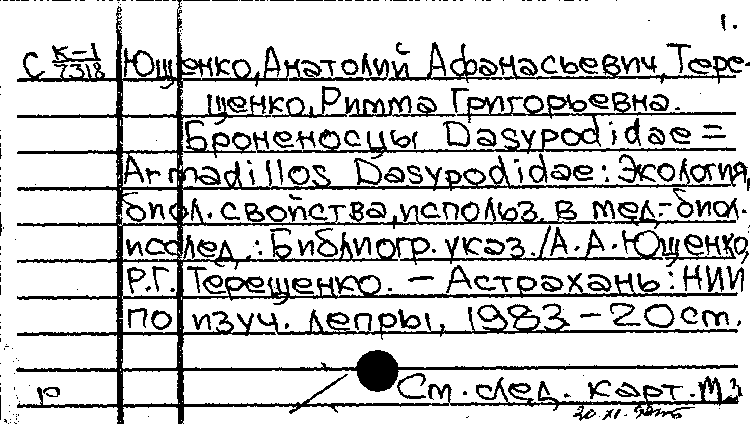 1.
С К-1/7318 Ющенко, Анатолий Афанасьевич, Тере-
щенко, Римма Григорьевна.
Броненосцы Dasypodidae =
Armadillos Dasypodidae: Экология,
биол. свойства, использ. в мед.-биол.
исслед.: Библиогр. указ. / А. А. Ющенко,
Р.Г. Терещенко. — Астрахань: НИИ
по изуч. лепры, 1983 – 20 см.
Ю См. след. карт.
20.XI.